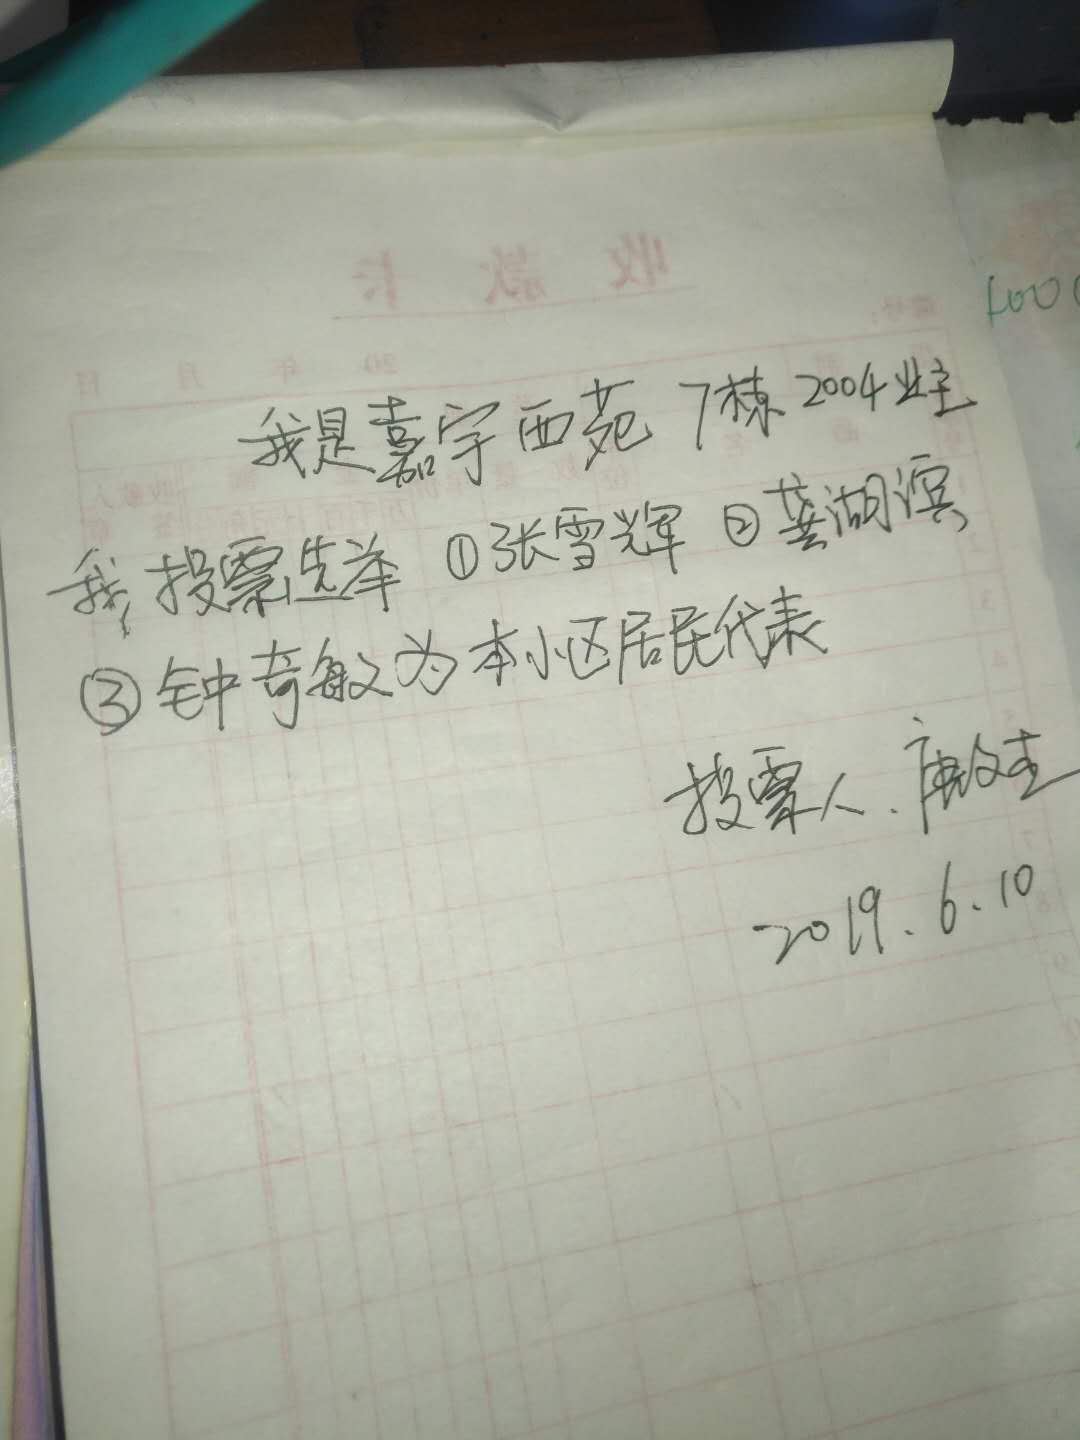 收款卡
编号:
20 年 月 日
400
我是嘉宇西苑 7栋 2004业主
我投票选举 ①张雪辉 ②龚湖滨
③钟奇敏为本小区居民代表
投票人.唐文生
2019.6.10